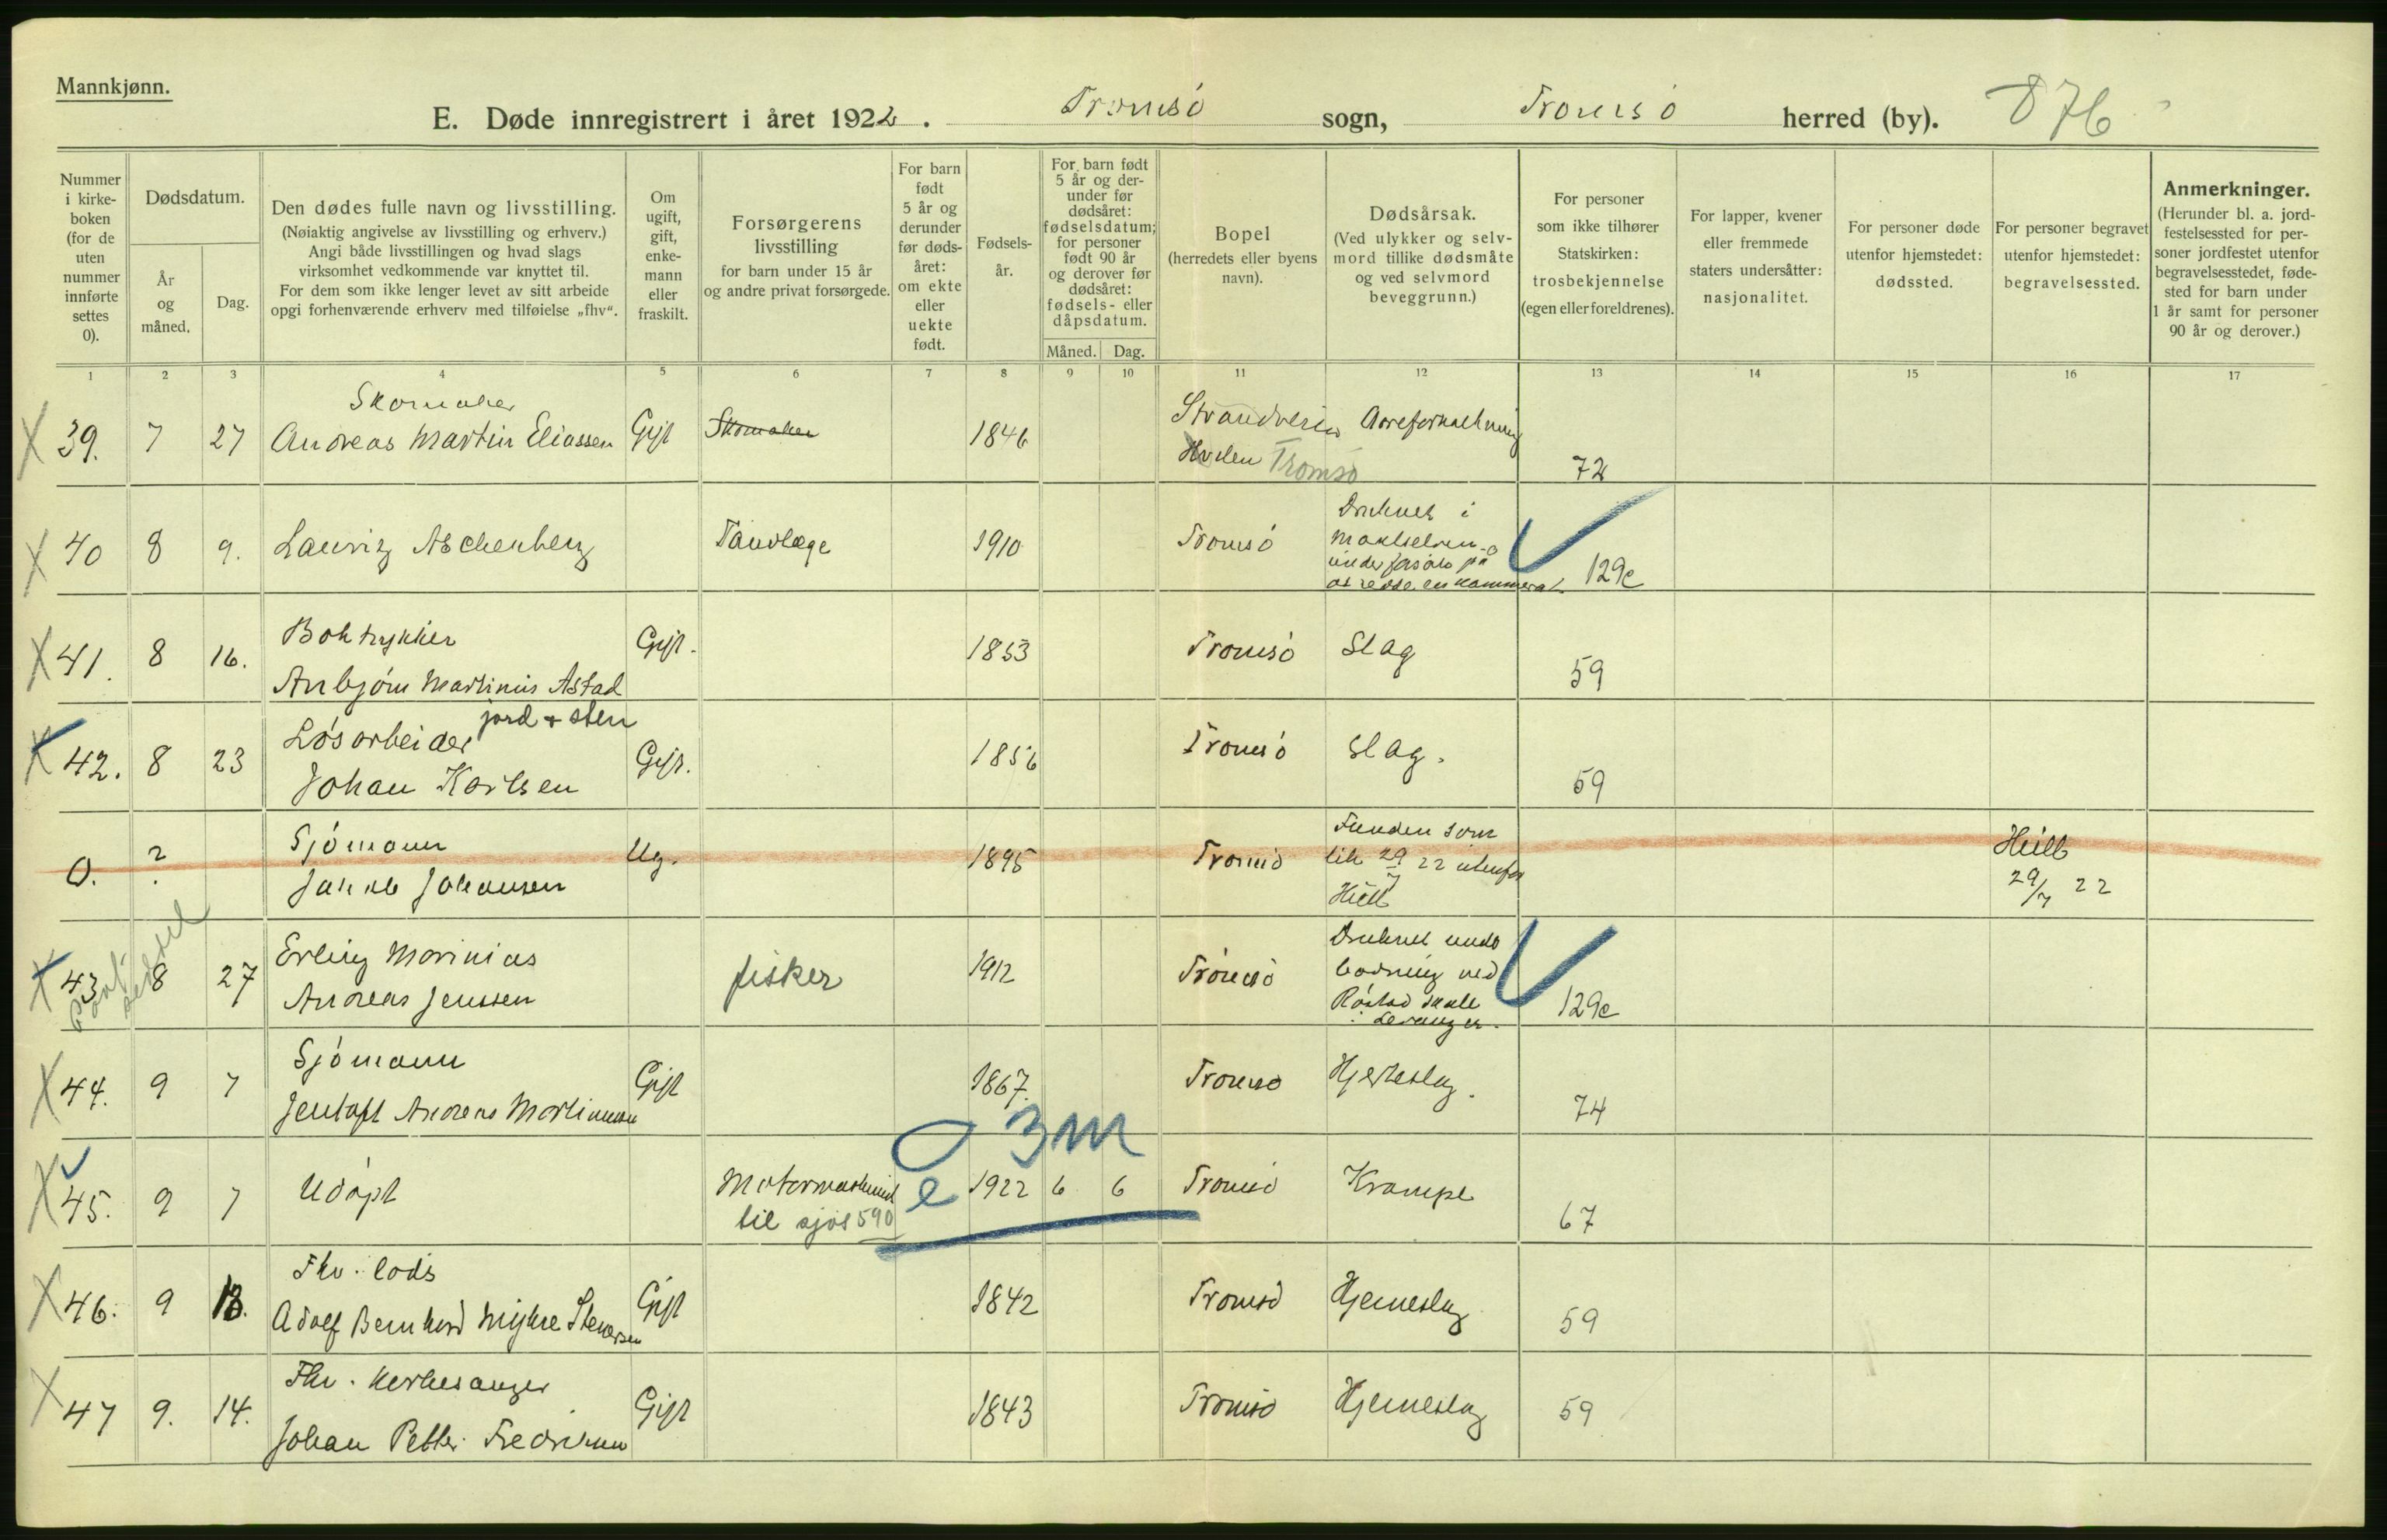 Mannkjønn.
E. Døde innregistrert i året 1922. Tromsö sogn, Tromsö herred (by). 876
Nummer i kirke-boken (for de uten nummer innførte settes 0).
Dødsdatum.
År og måned.
Dag.
Den dødes fulle navn og livsstilling.
(Nøiaktig angivelse av livsstilling og erhverv.)
Angi både livsstillingen og hvad slags
virksomhet vedkommende var knyttet til.
For dem som ikke lenger levet av sitt arbeide
opgi forhenværende erhverv med tilføielse „fhv“.
Om ugift, gift, enke-mann eller fraskilt.
Forsørgerens livsstilling
for barn under 15 år
og andre privat forsørgede.
For barn født 5 år og derunder før døds-året: om ekte eller uekte født.
Fødsels-år.
For barn født 5 år og der-under før dødsåret: fødselsdatum; for personer født 90 år og derover før dødsåret: fødsels- eller dåpsdatum.
Måned. Dag.
Bopel
(herredets eller byens navn).
Dødsårsak.
(Ved ulykker og selv-mord tillike dødsmåte og ved selvmord beveggrunn.)
For personer som ikke tilhører Statskirken: trosbekjennelse (egen eller foreldrenes).
For lapper, kvener eller fremmede staters undersåtter: nasjonalitet.
For personer døde utenfor hjemstedet: dødssted.
For personer begravet utenfor hjemstedet: begravelsessted.
Anmerkninger.
(Herunder bl. a. jord-festelsessted for per-soner jordfestet utenfor begravelsesstedet, føde-sted for barn under 1 år samt for personer 90 år og derover.)
1 2 3 4 5 6 7 8 9 10 11 12 13 14 15 16 17
Skomaker
39. 7 27 Andreas Martin Eliassen Gift Skomaker 1846 Strandveien Aareforkalkning
Tromsö 72
40 8 9. Lauritz Aschenberg Tandlæge 1910 Tromsö Druknet i
Maalselven
under forsök på
at redde en kammerat 129c
41. 8 16. Boktrykker Gift. 1853 Tromsö Slag
Arbjörn Martinius Astad 59
42. 8 23 Lösarbeider jord + sten Gift. 1856 Tromsö Slag.
Johan Karlsen 59
0. ? Sjömann Ug. 1895 Tromsö Funden som
lik 29/7 22 utenfor
Jakob Johansen
29/7 22
43 8 27 Erling Marinius fisker 1912 Tromsö Druknet under
Andreas Jenssen badning ved
Röstad skole
i Levanger. 129c
44. 9 7 Sjömann Gift 1867. Tromsö Hjerteslag.
Jentoft Andreas Martinussen 74
3m
45. 9 7 Udöpt Motormaskinist e 1922 6 6 Tromsö Krampe
til sjøs 590 67
46. 9 13. Fhv. lods Gift 1842 Tromsö Hjerneslag
Adolf Bernhard Stenersen 59
47 9. 14. Fhv. kirkesanger Gift 1843 Tromsö Hjerneslag 59
Johan Petter Fredriksen